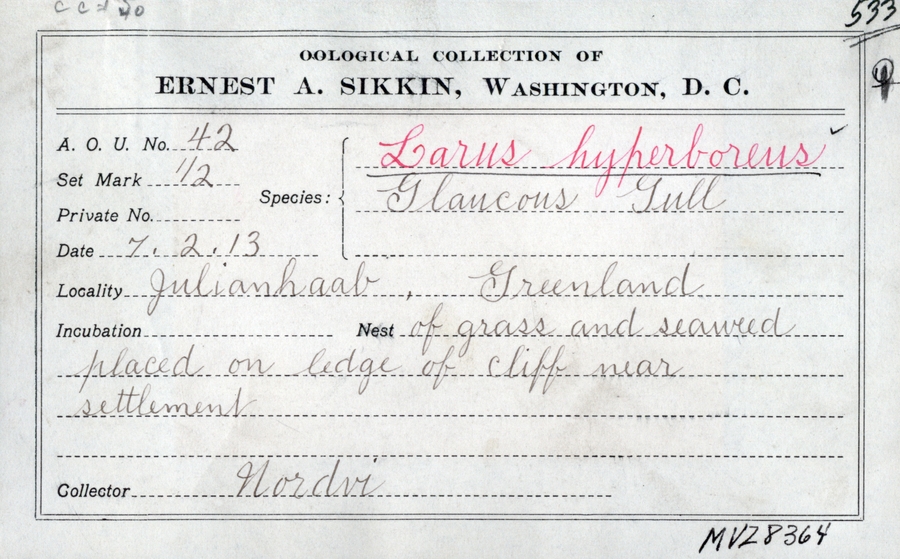 533
OOLOGICAL COLLECTION OF
ERNEST A. SIKKIN, WASHINGTON, D. C.
A. O. U. No. 42
Set Mark 1/2
Private No.
Date 7. 2. 13
Species: Larus hyperboreus
Glaucous Gull
Locality Julianhaab, Greenland
Incubation Nest of grass and seaweed
placed on ledge of cliff near
settlement
Collector Nordvi
MVZ 8364